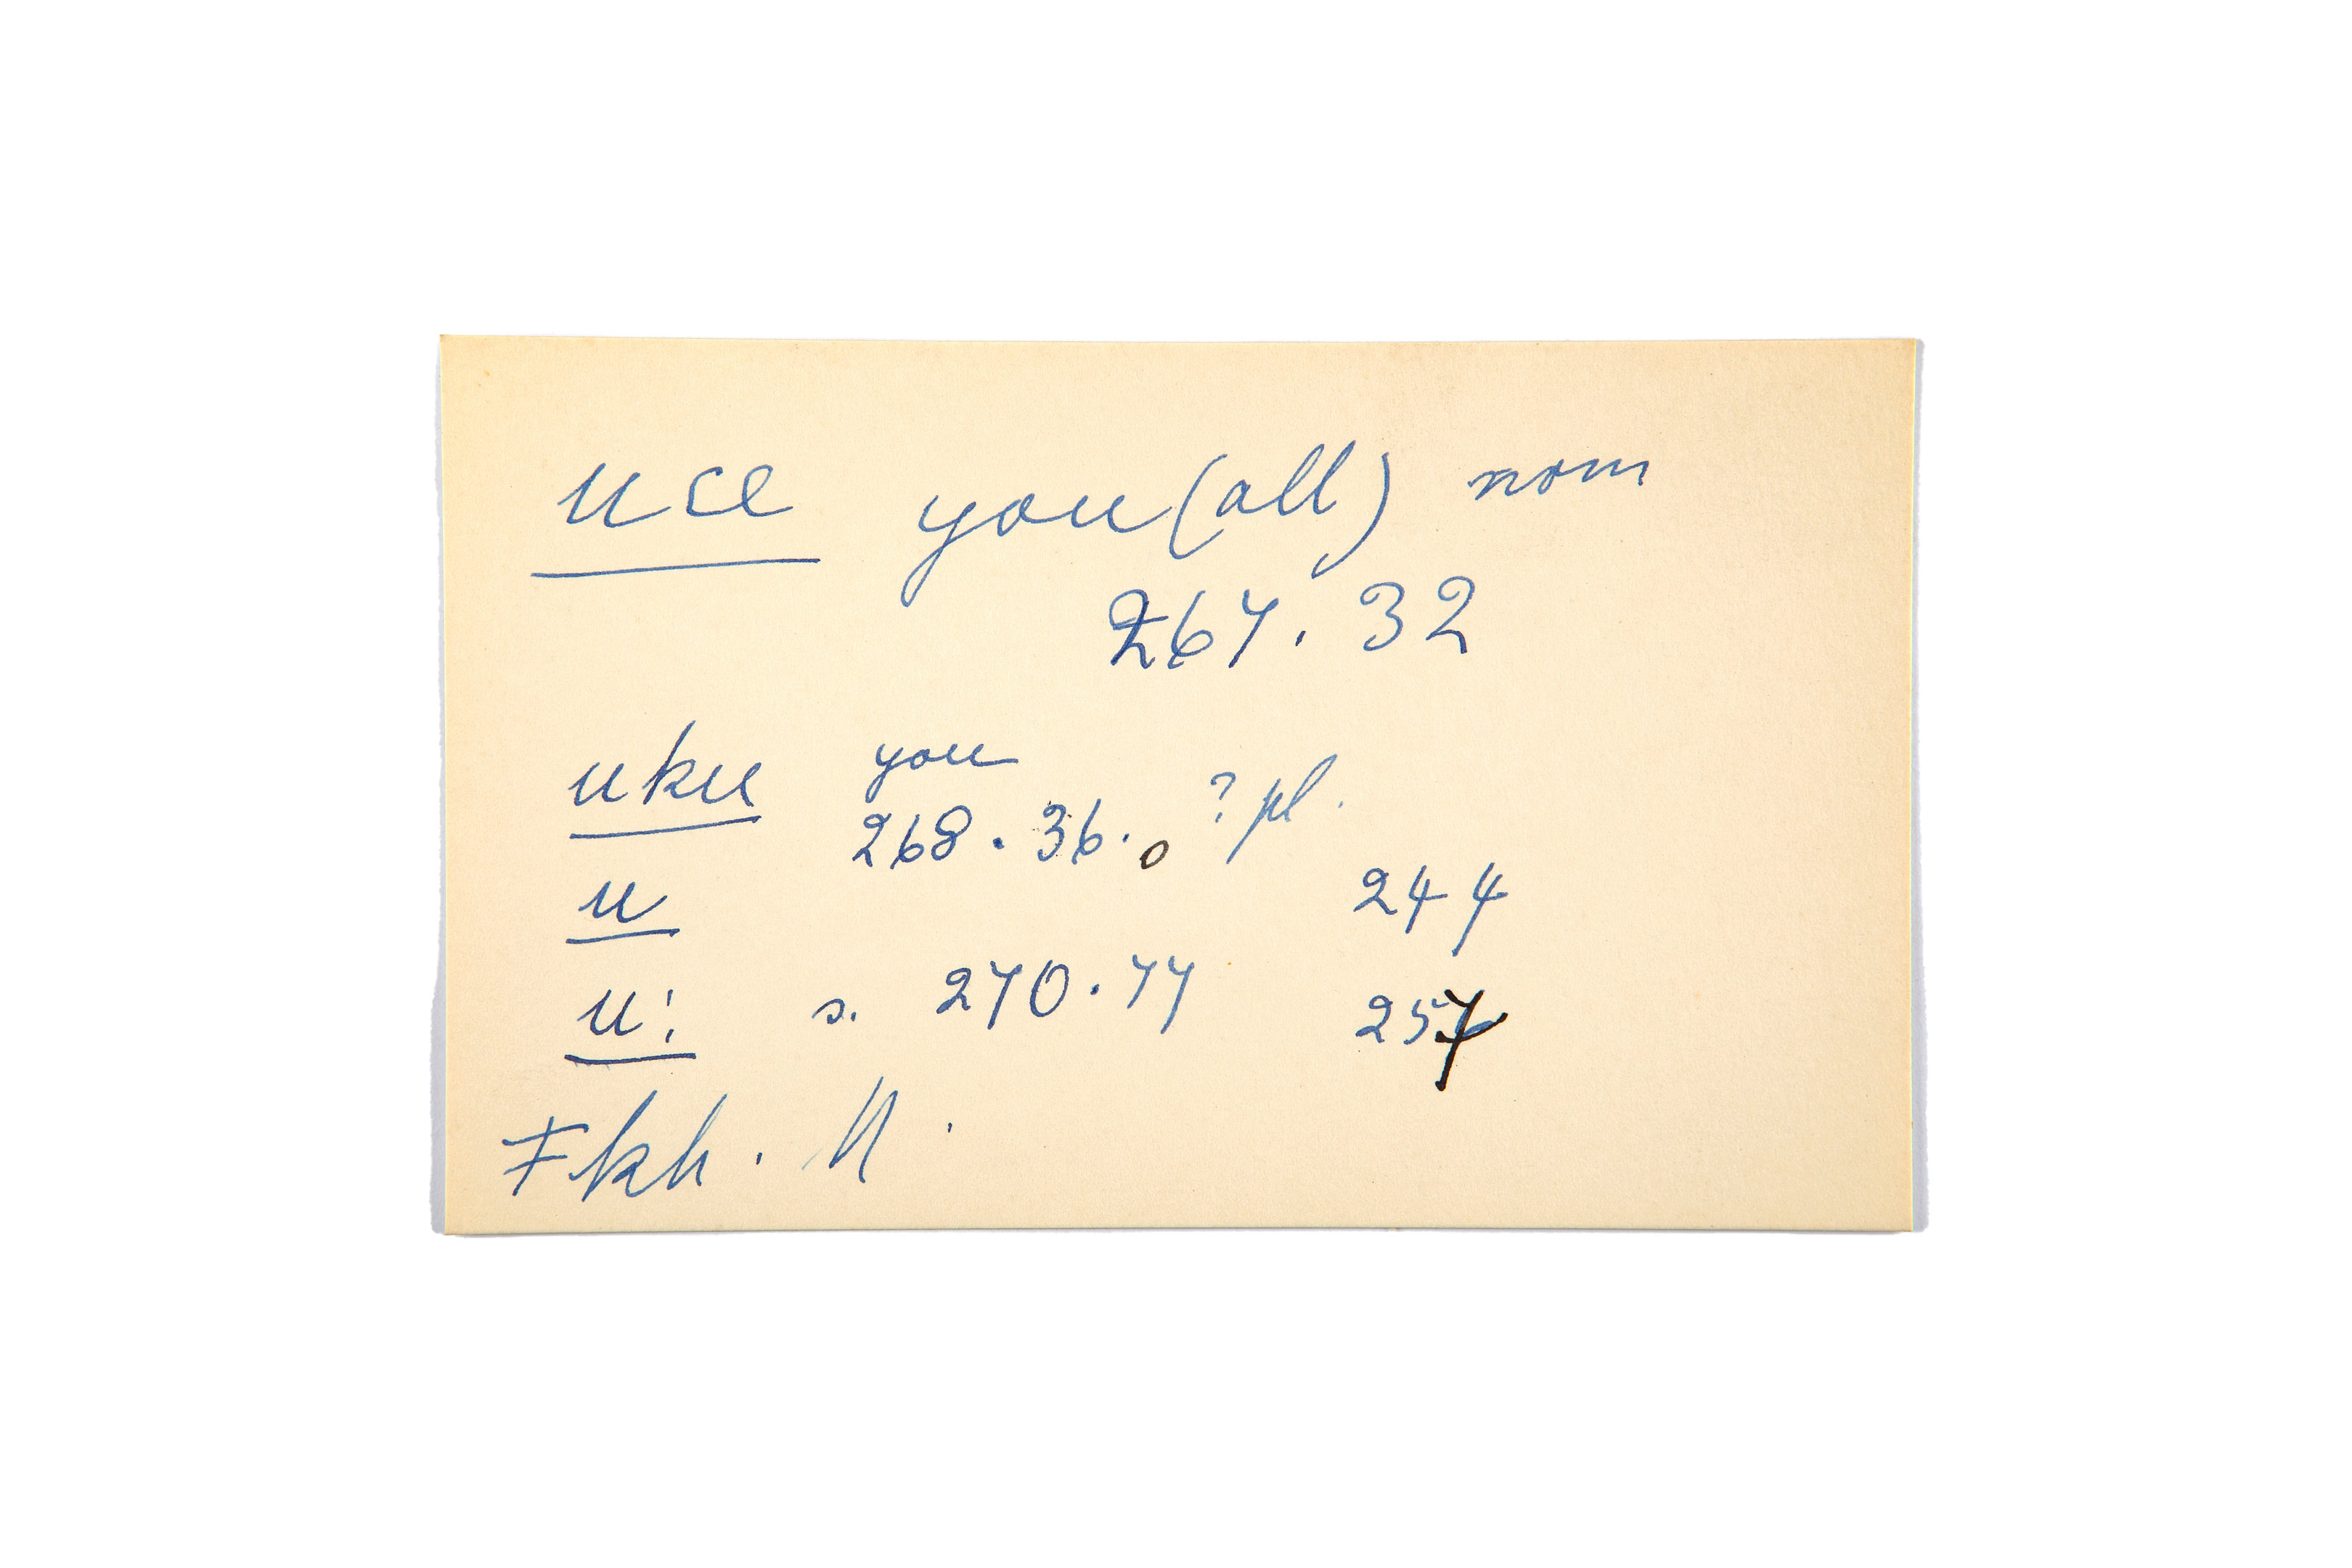 uce you (all) nom
267. 32
uku you
268. 36. o ? pl.
u 244
u: s. 270. 77 257
Fkh. N.